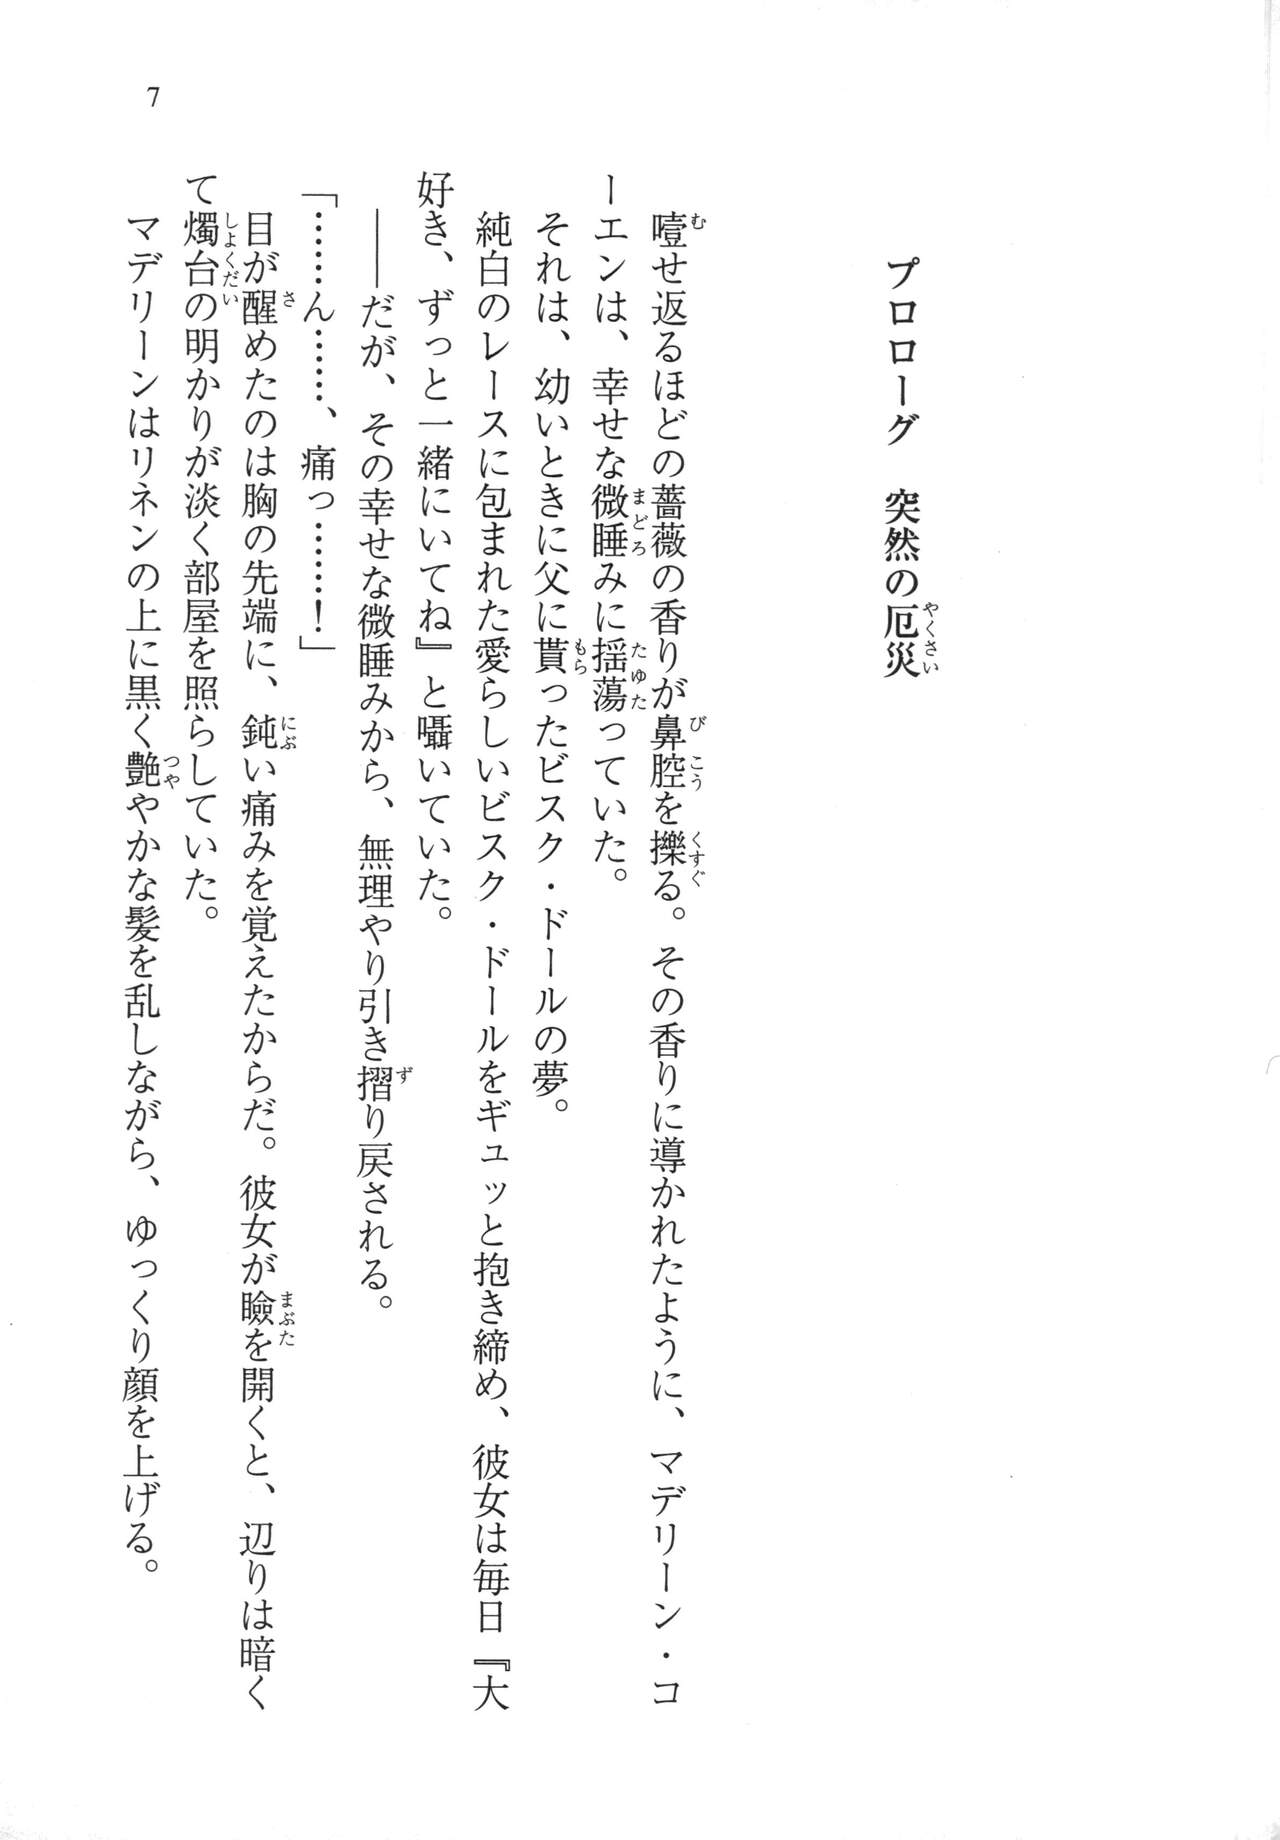 7
プロローグ　突然の厄災
噎せ返るほどの薔薇の香りが鼻腔を擽る。その香りに導かれたように、マデリーン・コ
ーエンは、幸せな微睡みに揺蕩っていた。
それは、幼いときに父に貰ったビスク・ドールの夢。
純白のレースに包まれた愛らしいビスク・ドールをギュッと抱き締め、彼女は毎日『大
好き、ずっと一緒にいてね』と囁いていた。
――だが、その幸せな微睡みから、無理やり引き摺り戻される。
「……ん……、痛っ……！」
目が醒めたのは胸の先端に、鈍い痛みを覚えたからだ。彼女が瞼を開くと、辺りは暗く
て燭台の明かりが淡く部屋を照らしていた。
マデリーンはリネンの上に黒く艶やかな髪を乱しながら、ゆっくり顔を上げる。